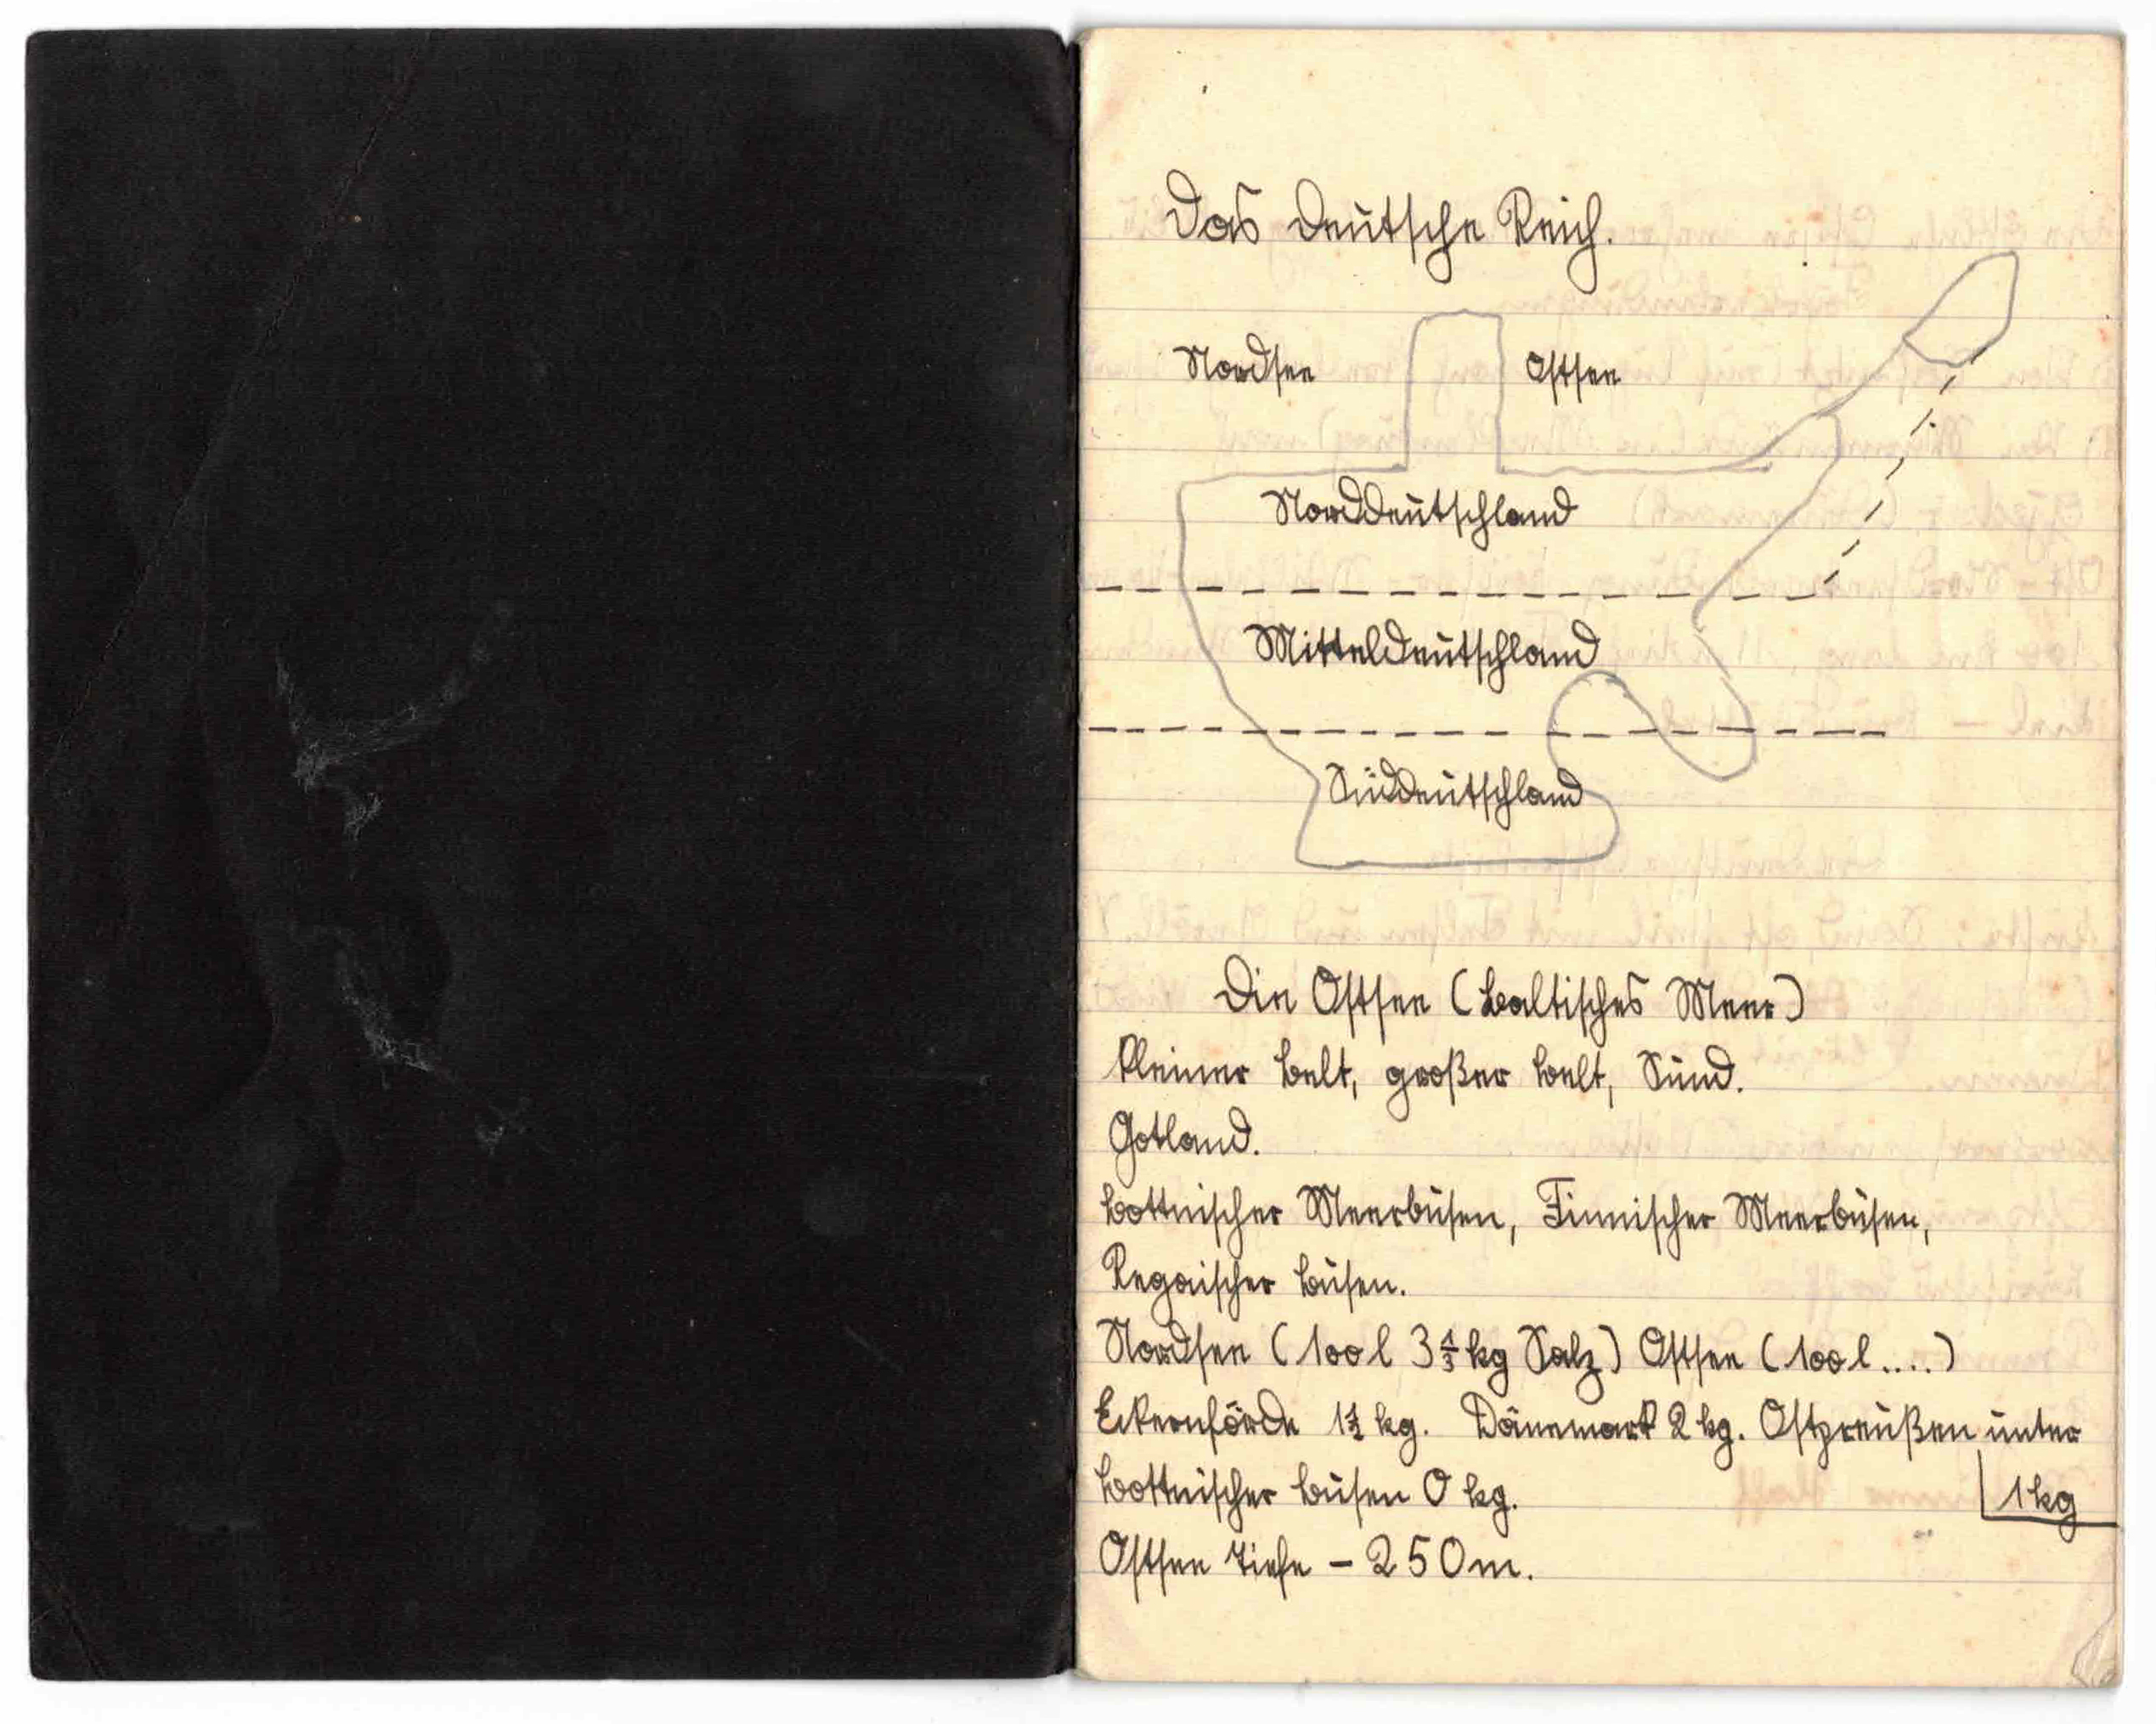 Das Deutsche Reich.
Nordsee Ostsee
Norddeutschland
Mitteldeutschland
Süddeutschland
Die Ostsee (Baltisches Meer)
Kleiner Belt, großer Belt, Sund.
Gotland.
Bottnischer Meerbusen, Finnischer Meerbusen,
Regaischer Busen.
Nordsee (100 l 3⅓ kg Salz) Ostsee (100 l....)
Eckernförde 1½ kg. Dänemark 2 kg. Ostpreußen unter
Bottnischer Busen 0 kg. 1 kg
Ostsee Tiefe – 250 m.